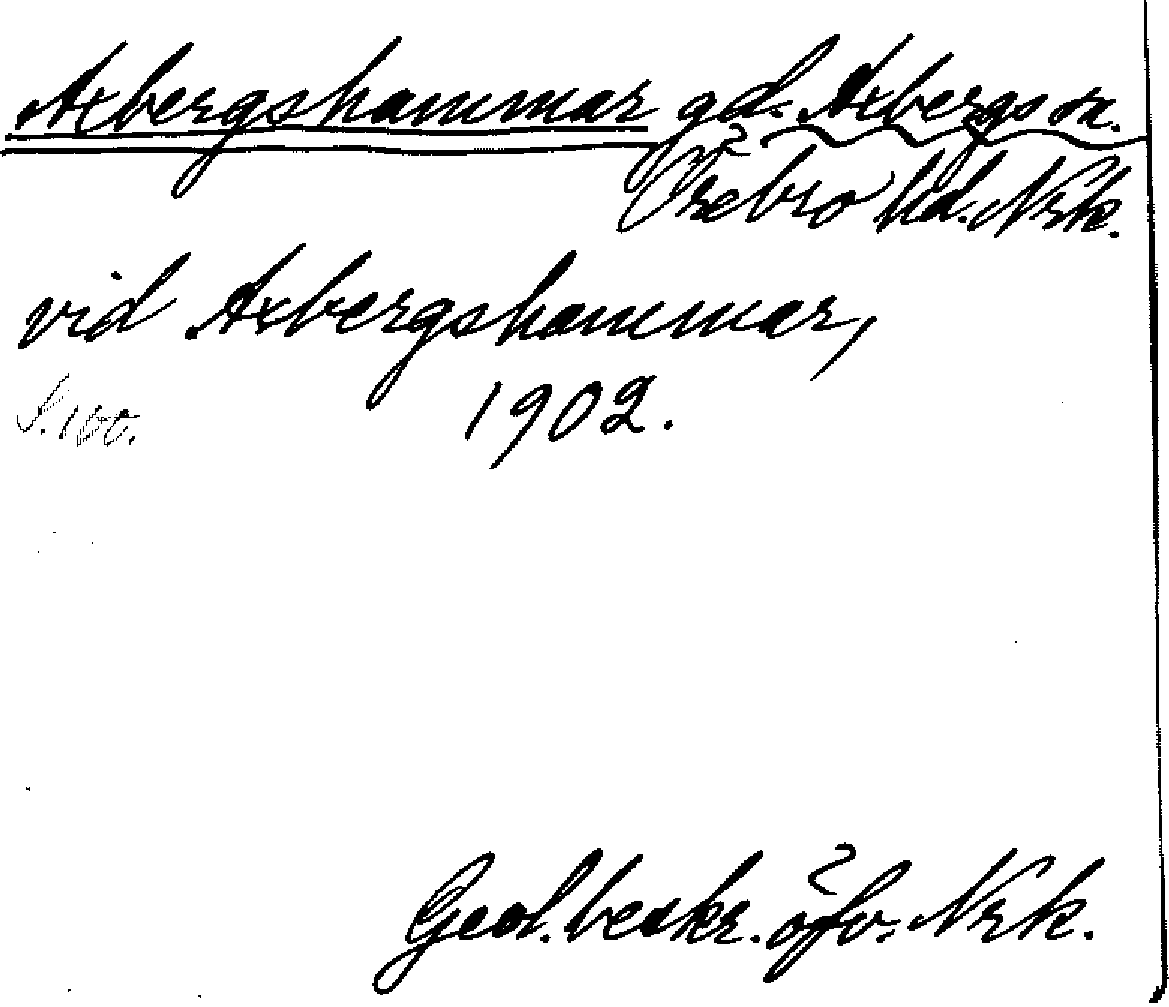 Axbergshammar gd. Axbergs sn.
Örebro hd. Nrk.
vid Axbergshammar,
S. 160. 1902.
Geol. beskr. öfv. Nrk.